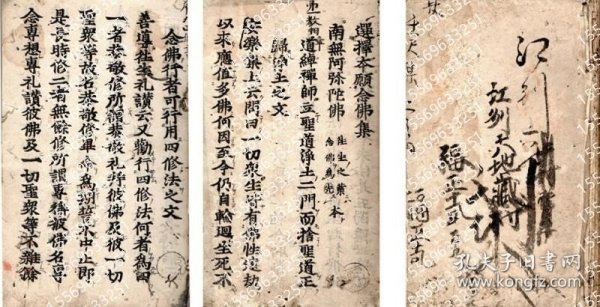 念佛行者可行用四修法之文
善導往生礼讃云又勸行四修法何者爲四
一者恭敬修所謂恭敬礼拝彼佛及彼一切
聖衆等故名恭敬修畢命爲期誓不中止即
是長時修二者無餘修所謂専稱彼佛名専
念専想専礼讃彼佛及一切聖衆等不雜餘
選擇本願念佛集
南無阿弥陀佛 往生之業 念佛爲先 本
道綽禅師立聖道浄土二門而捨聖道正
歸浄土之文
安樂集上云問曰一切衆生皆有佛性遠劫
以來應値多佛何因至今仍自輪廻生死不
江列
江列大地蔵村
孔夫子旧书网
kongfz.com